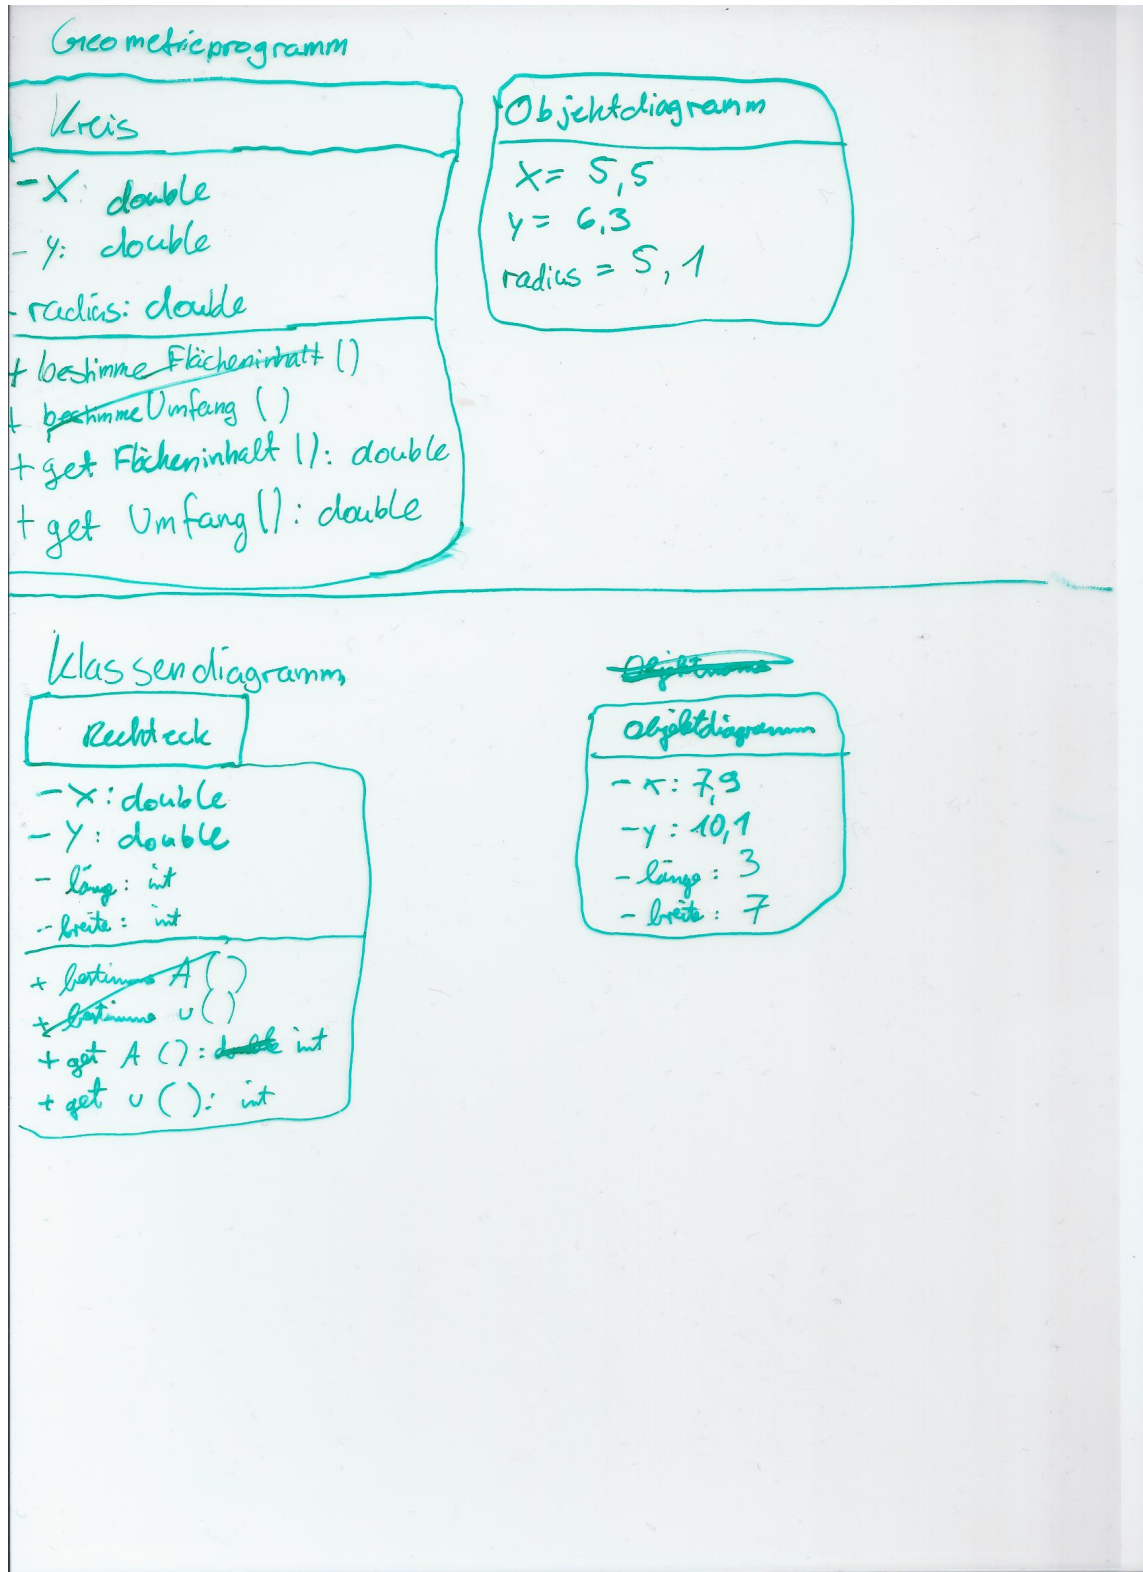 Geometrieprogramm
Kreis
- X: double
- y: double
- radius: double
+ bestimme Flächeninhalt ()
+ bestimme Umfang ()
+ get Flächeninhalt (): double
+ get Umfang (): double
Objektdiagramm
X= 5,5
y= 6,3
radius = 5,1
Klassendiagramm
Rechteck
- X: double
- Y: double
- länge: int
- breite: int
+ bestimme A ()
+ bestimme u ()
+ get A (): double int
+ get u (): int
Objektname
Objektdiagramm
- x: 7,9
- y: 10,1
- länge: 3
- breite: 7